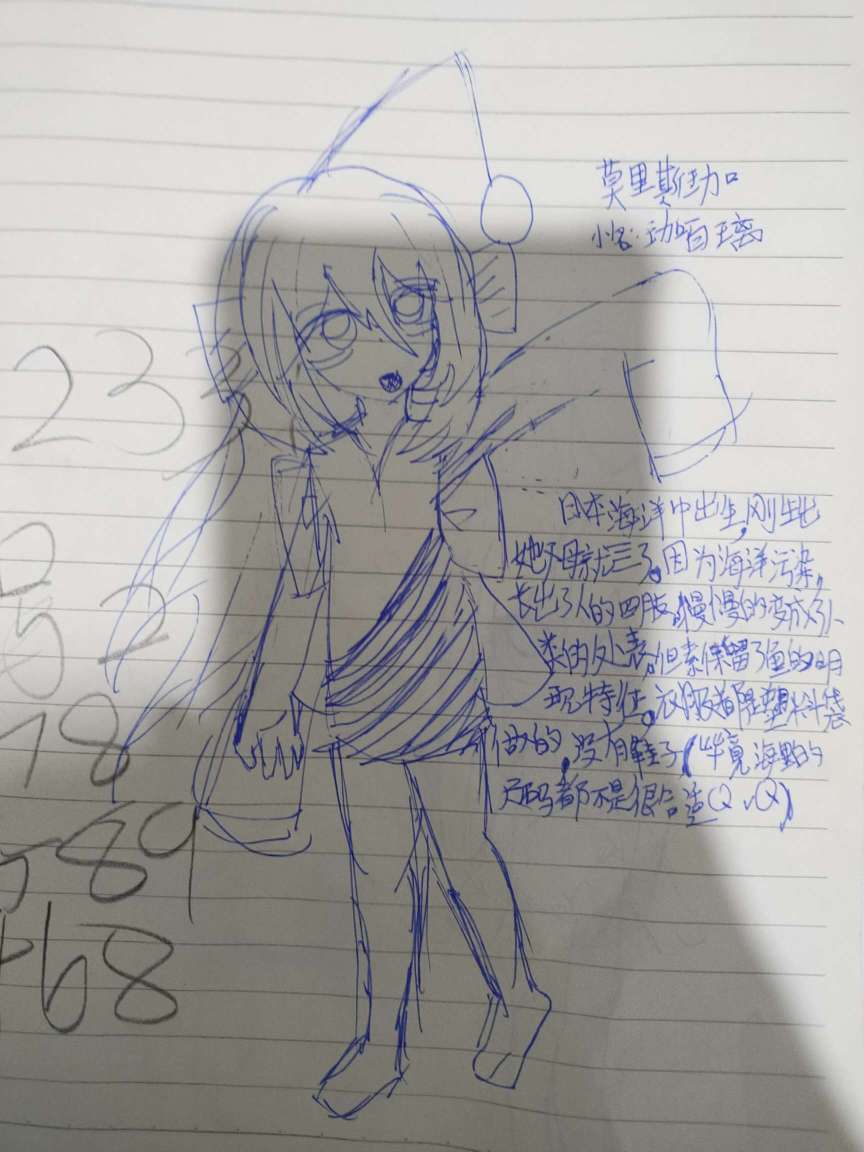 莫里斯加
小名:动
日本海洋中出生,刚生出
她 母就亡了,因为海洋污染,
长出了人的四肢,慢慢的变成
类的外表,但 保留了鱼的明
现特征,衣服都是塑料袋
做的,没有鞋子(毕竟海里的
尺码都不是很合适QvQ)
23
5 2
78
89
+68